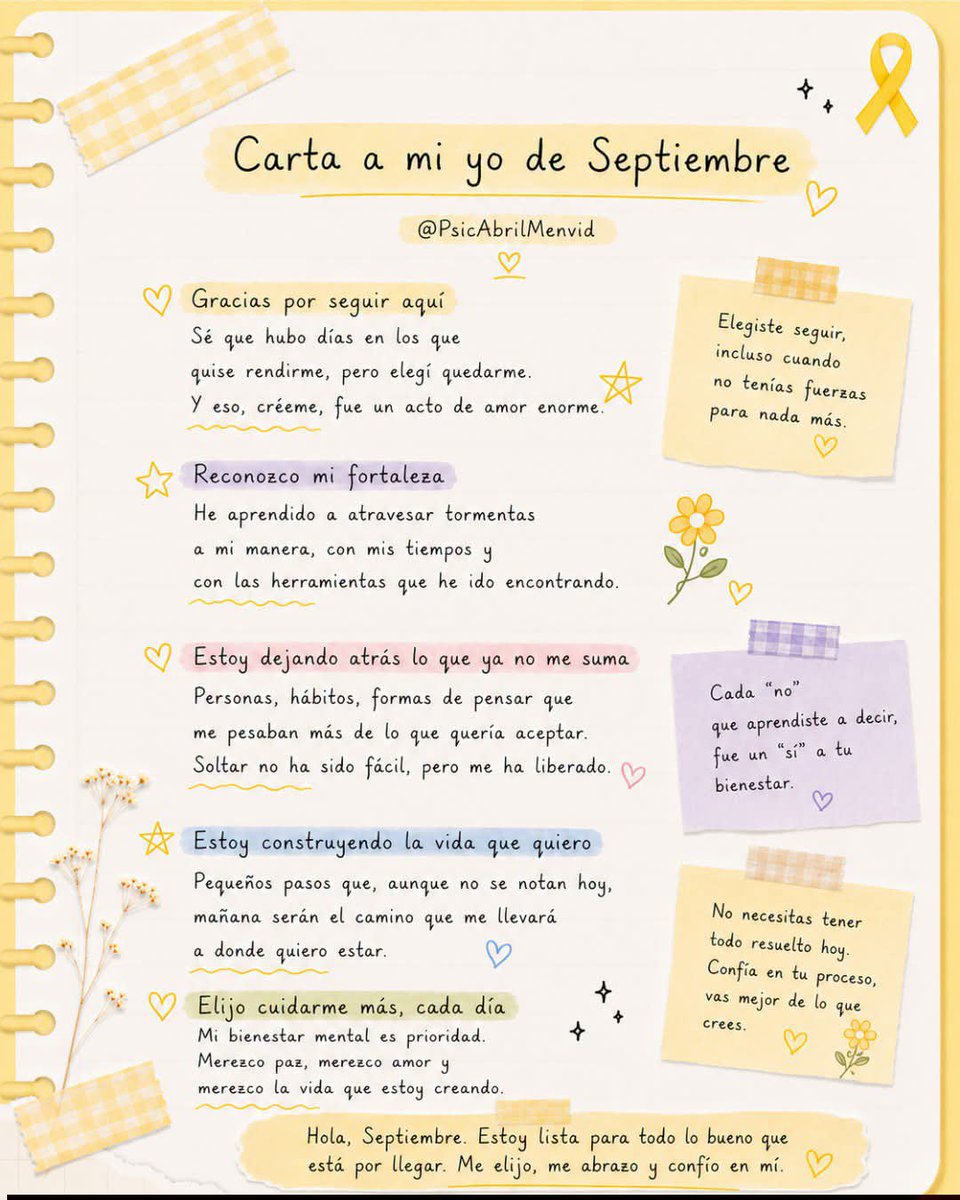 Carta a mi yo de Septiembre
@PsicAbrilMenvid
Gracias por seguir aquí
Sé que hubo días en los que
quise rendirme, pero elegí quedarme.
Y eso, créeme, fue un acto de amor enorme.
Elegiste seguir,
incluso cuando
no tenías fuerzas
para nada más.
Reconozco mi fortaleza
He aprendido a atravesar tormentas
a mi manera, con mis tiempos y
con las herramientas que he ido encontrando.
Estoy dejando atrás lo que ya no me suma
Personas, hábitos, formas de pensar que
me pesaban más de lo que quería aceptar.
Soltar no ha sido fácil, pero me ha liberado.
Cada “no”
que aprendiste a decir,
fue un “sí” a tu
bienestar.
Estoy construyendo la vida que quiero
Pequeños pasos que, aunque no se notan hoy,
mañana serán el camino que me llevará
a donde quiero estar.
No necesitas tener
todo resuelto hoy.
Confía en tu proceso,
vas mejor de lo que
crees.
Elijo cuidarme más, cada día
Mi bienestar mental es prioridad.
Merezco paz, merezco amor y
merezco la vida que estoy creando.
Hola, Septiembre. Estoy lista para todo lo bueno que
está por llegar. Me elijo, me abrazo y confío en mí.